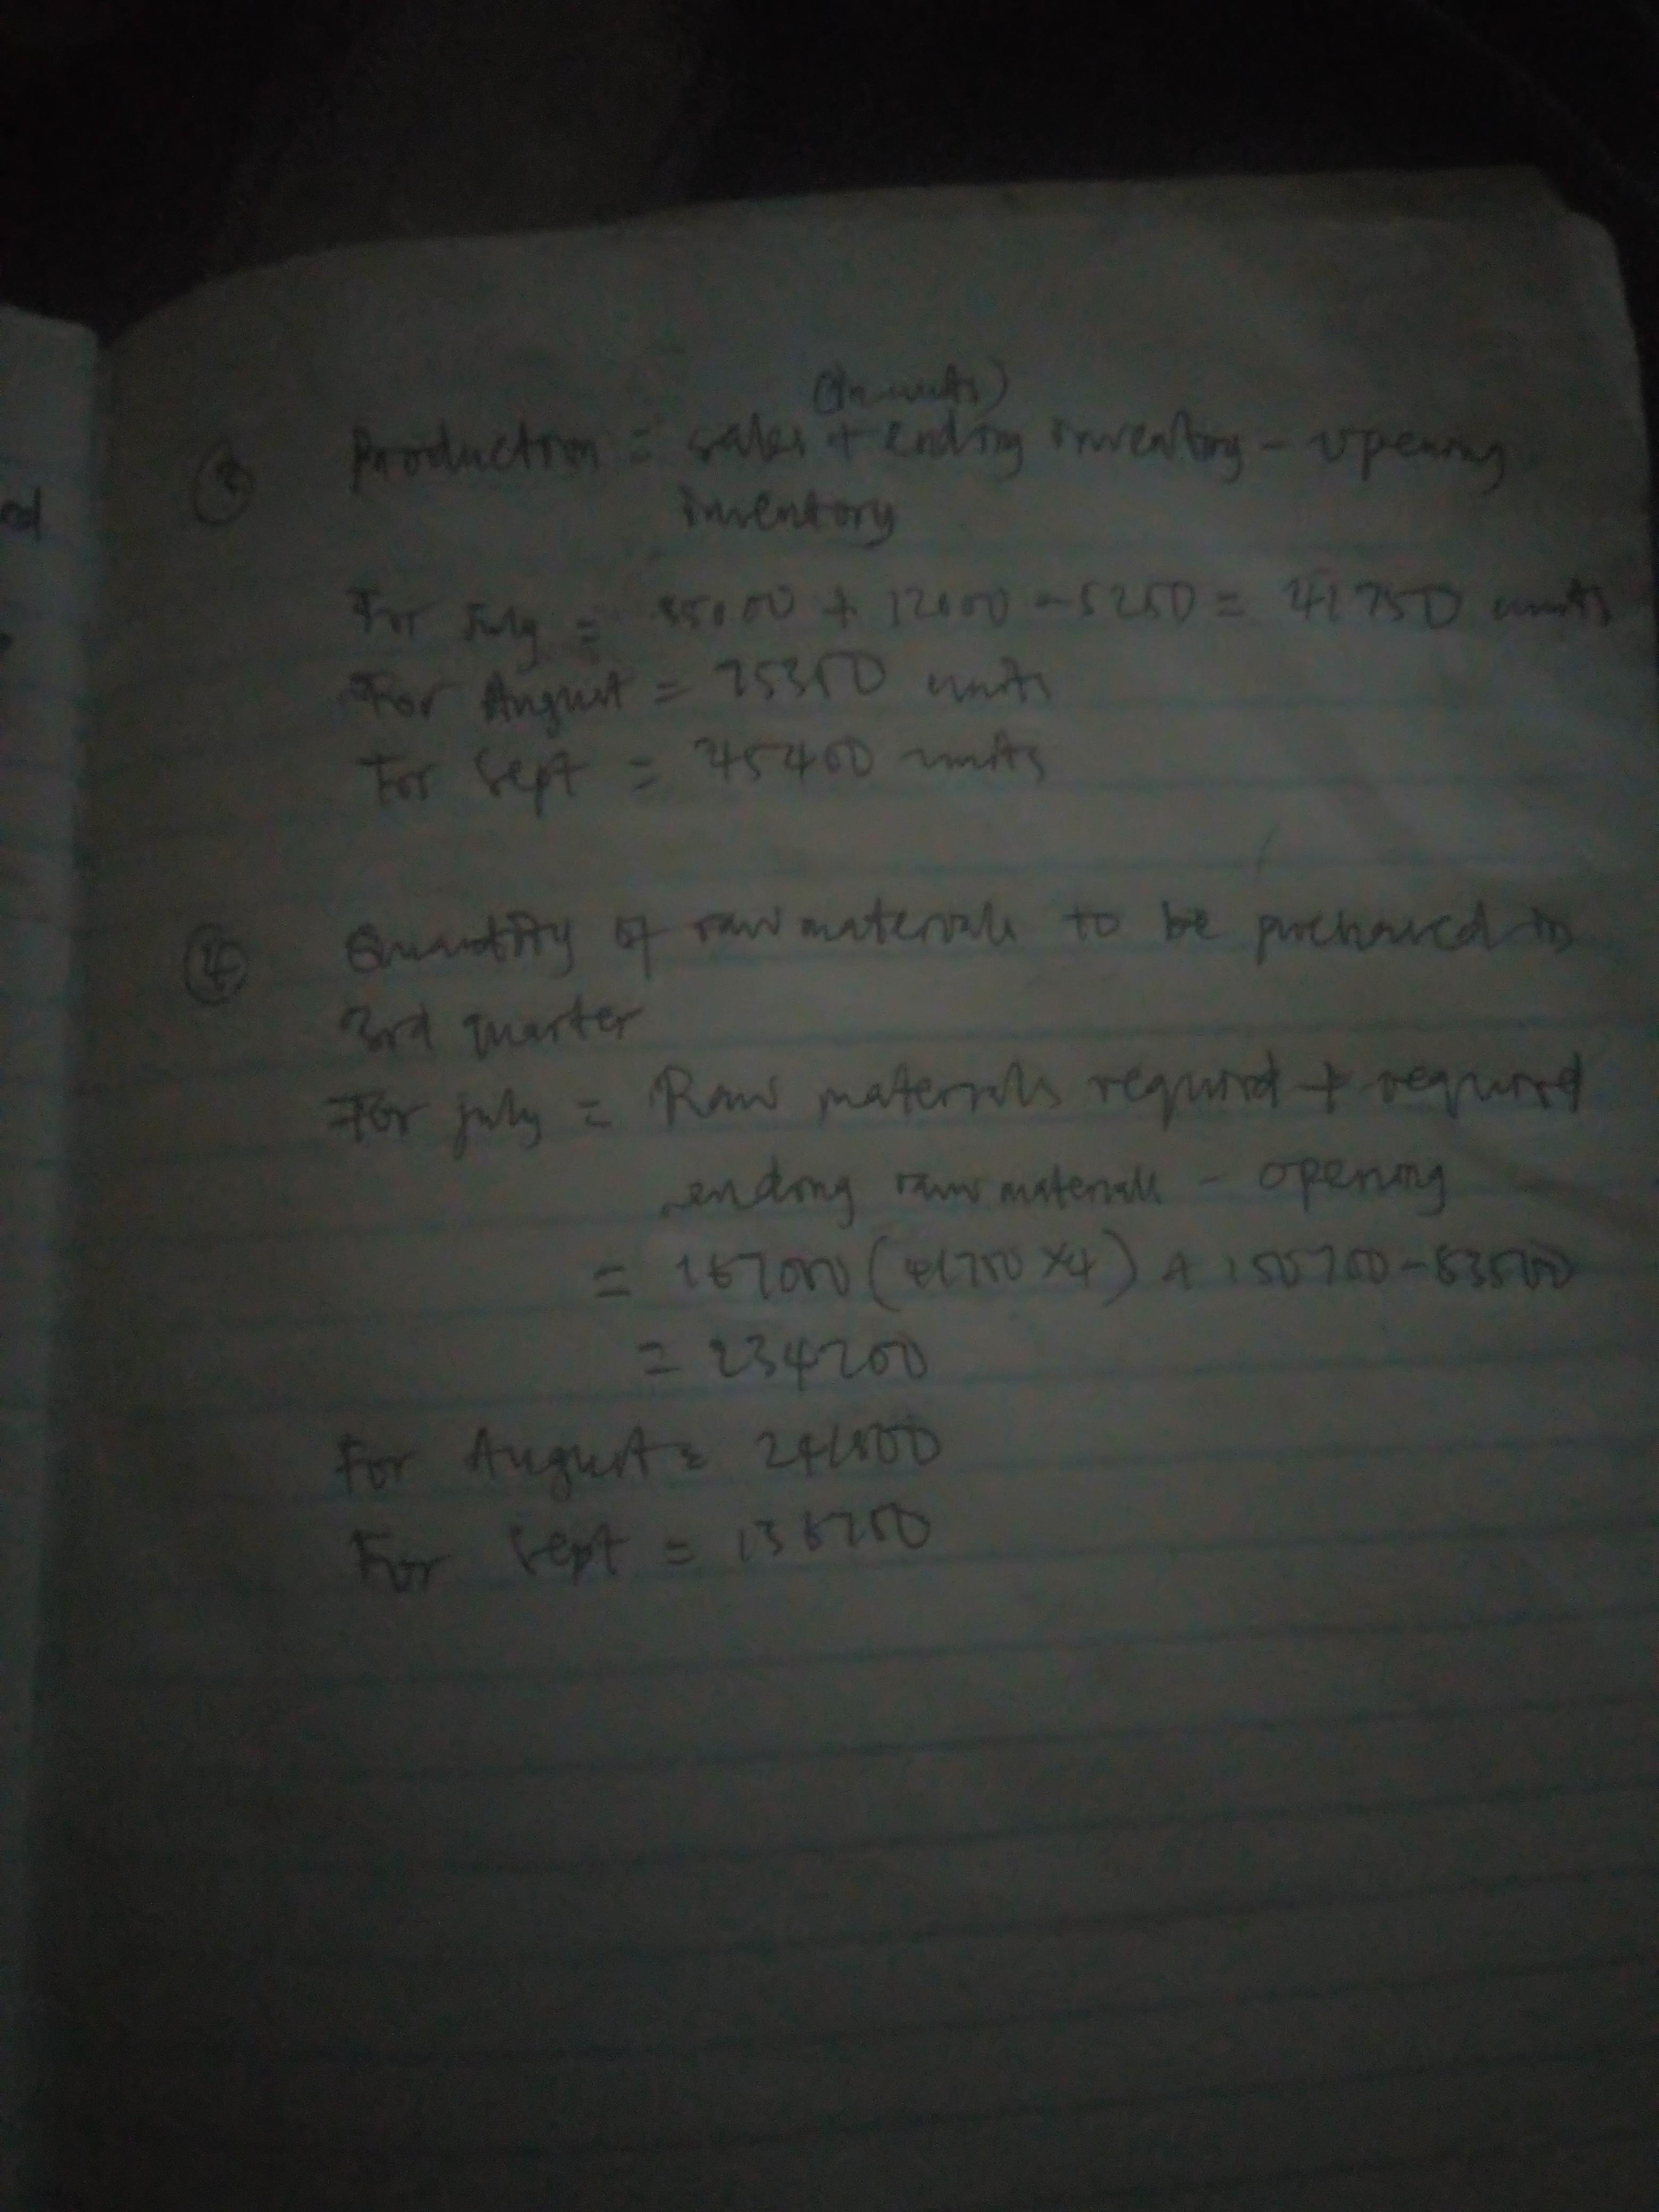 (In units)
③ Production = sales + ending inventory - opening
inventory
For July = 35000 + 12000 - 5250 = 41750 units
For August = 75350 units
For Sept = 45400 units
④ Quantity of raw materials to be purchased in
3rd quarter
For july = Raw materials required + required
ending raw materials - opening
= 167000 (41750 x 4) + 150700 - 83500
= 234200
For August =
For Sept =